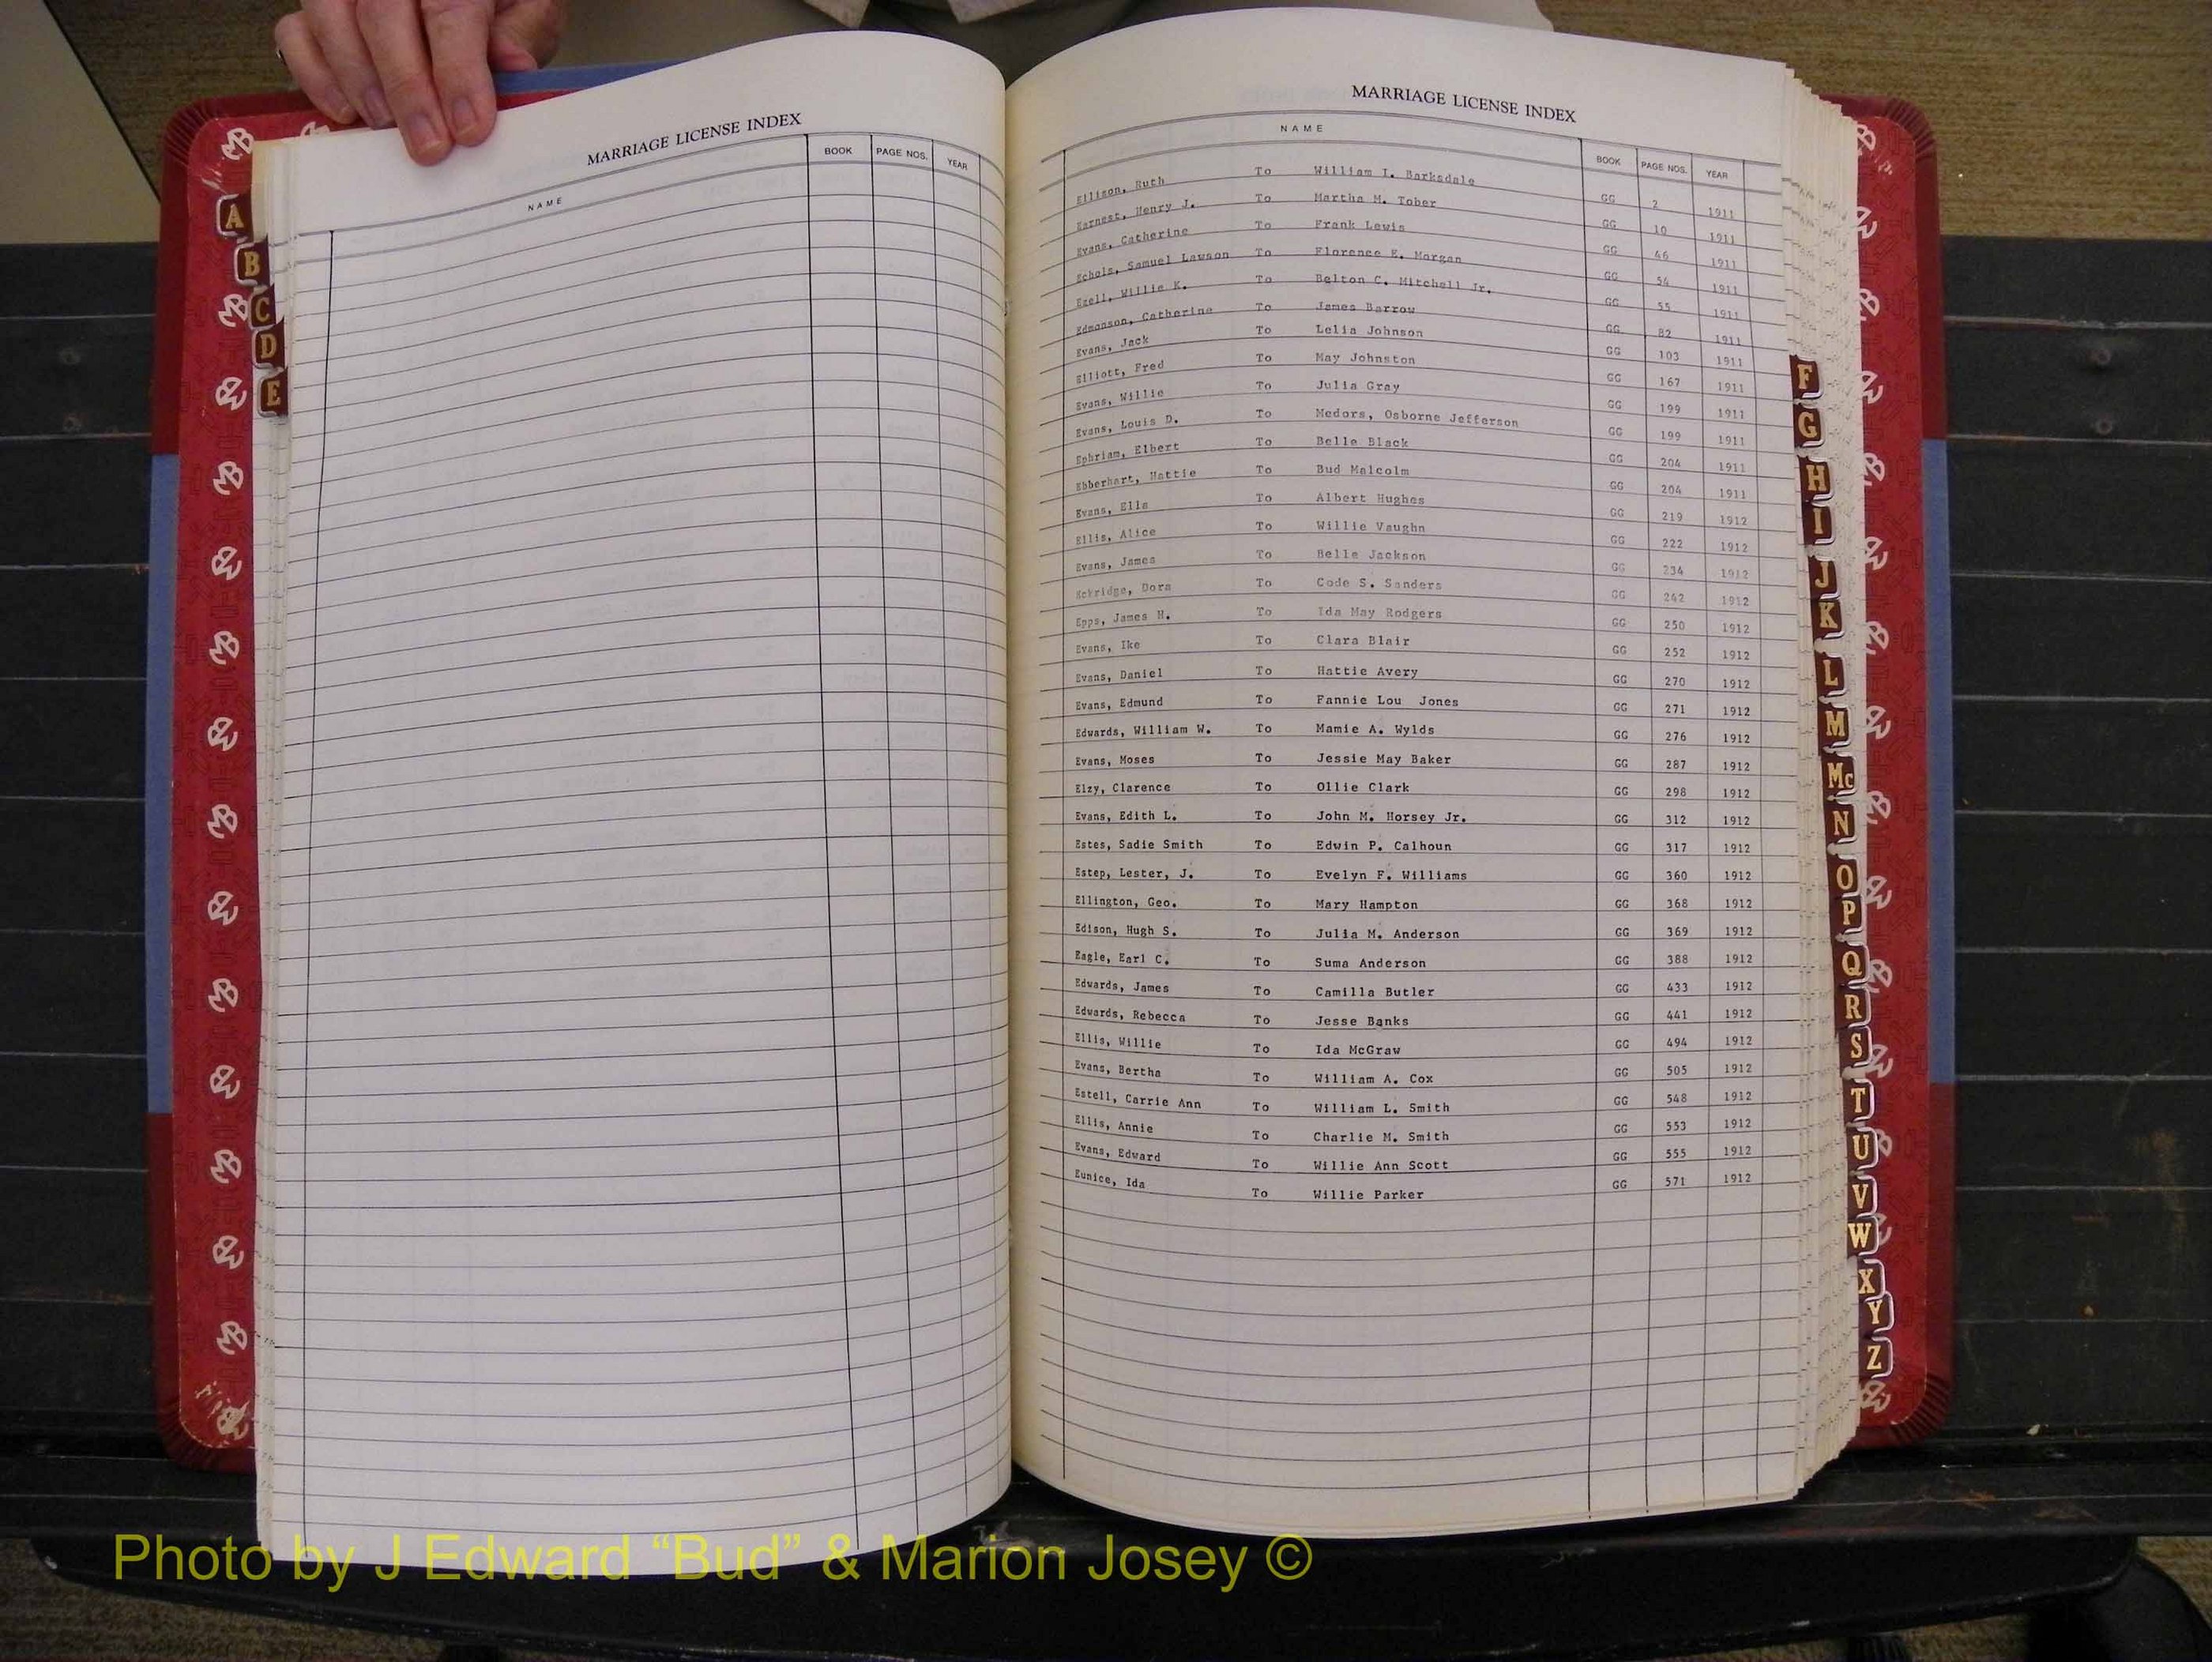 MARRIAGE LICENSE INDEX
NAME BOOK PAGE NOS. YEAR
A
B
C
D
E
MARRIAGE LICENSE INDEX
NAME BOOK PAGE NOS. YEAR
Ellison, Ruth To William I. Barksdale GG 2 1911
Earnest, Henry J. To Martha M. Tober GG 10 1911
Evans, Catherine To Frank Lewis GG 46 1911
Echols, Samuel Lawson To Florence E. Morgan GG 54 1911
Ezell, Willie K. To Belton C. Mitchell Jr. GG 55 1911
Edmonson, Catherine To James Barrow GG 82 1911
Evans, Jack To Lelia Johnson GG 103 1911
Elliott, Fred To May Johnston GG 167 1911
Evans, Willie To Julia Gray GG 199 1911
Evans, Louis D. To Medors, Osborne Jefferson GG 199 1911
Ephriam, Elbert To Belle Black GG 204 1911
Ebberhart, Hattie To Bud Malcolm GG 204 1911
Evans, Ella To Albert Hughes GG 219 1912
Ellis, Alice To Willie Vaughn GG 222 1912
Evans, James To Belle Jackson GG 234 1912
Eckridge, Dora To Code S. Sanders GG 242 1912
Epps, James H. To Ida May Rodgers GG 250 1912
Evans, Ike To Clara Blair GG 252 1912
Evans, Daniel To Hattie Avery GG 270 1912
Evans, Edmund To Fannie Lou Jones GG 271 1912
Edwards, William W. To Mamie A. Wylds GG 276 1912
Evans, Moses To Jessie May Baker GG 287 1912
Elzy, Clarence To Ollie Clark GG 298 1912
Evans, Edith L. To John M. Horsey Jr. GG 312 1912
Estes, Sadie Smith To Edwin P. Calhoun GG 317 1912
Estep, Lester, J. To Evelyn F. Williams GG 360 1912
Ellington, Geo. To Mary Hampton GG 368 1912
Edison, Hugh S. To Julia M. Anderson GG 369 1912
Eagle, Earl C. To Suma Anderson GG 388 1912
Edwards, James To Camilla Butler GG 433 1912
Edwards, Rebecca To Jesse Banks GG 441 1912
Ellis, Willie To Ida McGraw GG 494 1912
Evans, Bertha To William A. Cox GG 505 1912
Estell, Carrie Ann To William L. Smith GG 548 1912
Ellis, Annie To Charlie M. Smith GG 553 1912
Evans, Edward To Willie Ann Scott GG 555 1912
Eunice, Ida To Willie Parker GG 571 1912
F
G
H
I
J
K
L
M
Mc
N
O
P
Q
R
S
T
U
V
W
X
Y
Z
Photo by J Edward “Bud” & Marion Josey ©